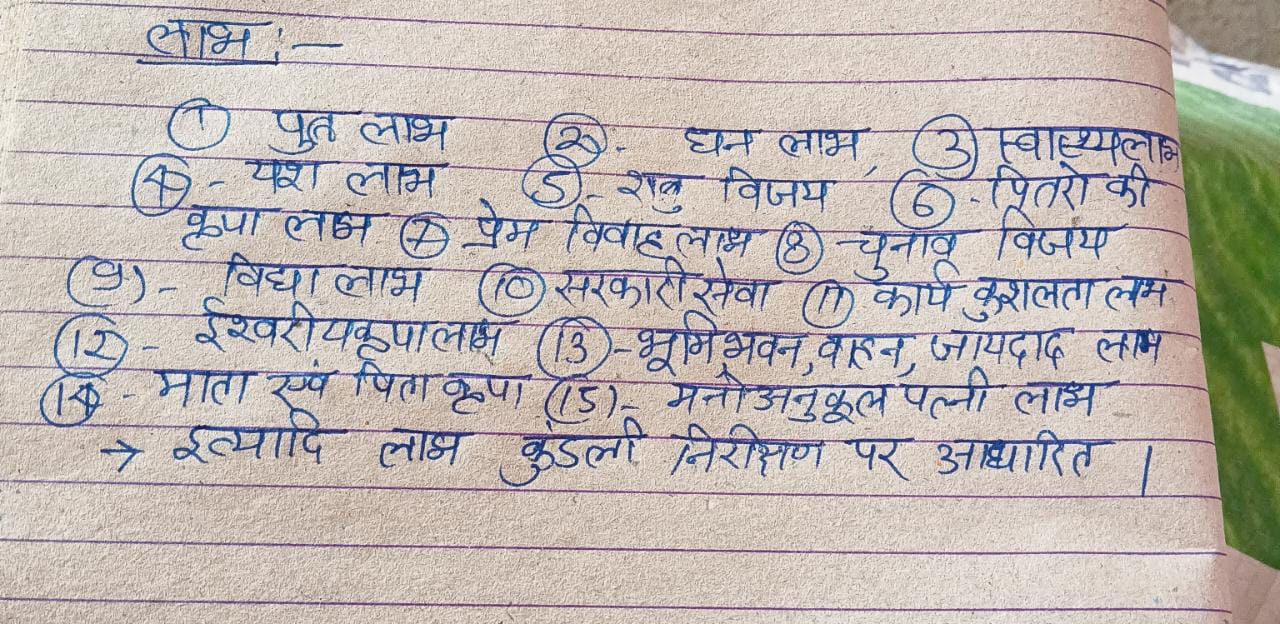 लाभ :-
① पुत्र लाभ ②- धन लाभ, ③ स्वास्थ्यलाभ
④- यश लाभ ⑤- शत्रु विजय ⑥- पितरो की
कृपा लाभ ⑦ प्रेम विवाह लाभ ⑧ - चुनाव विजय
(9)- विद्या लाभ ⑩ सरकारी सेवा ⑪ कार्य कुशलता लाभ
⑫- ईश्वरीयकृपालाभ ⑬- भूमि भवन, वाहन, जायदाद लाभ
⑭- माता एवं पिता कृपा (15)- मनोअनुकूल पत्नी लाभ
→ इत्यादि लाभ कुंडली निरीक्षण पर आधारित |